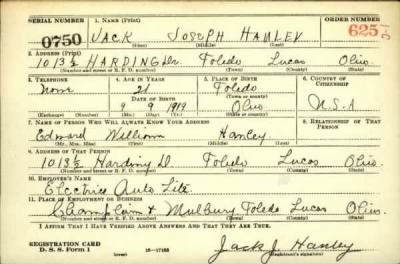 SERIAL NUMBER 1. NAME (Print) ORDER NUMBER
0750 JACK JOSEPH HANLEY 625
(First) (Middle) (Last)
2. ADDRESS (Print)
1013½ HARDING Dr. Toledo Lucas Ohio.
(Number and street or R. F. D. number) (Town) (County) (State)
3. TELEPHONE 4. AGE IN YEARS 5. PLACE OF BIRTH 6. COUNTRY OF CITIZENSHIP
None 21 Toledo
DATE OF BIRTH (Town or county)
9 9 1919 Ohio U.S.A
(Mo.) (Day) (Yr.) (State or country)
7. NAME OF PERSON WHO WILL ALWAYS KNOW YOUR ADDRESS 8. RELATIONSHIP OF THAT PERSON
Edward William Hanley
(Mr., Mrs., Miss) (First) (Middle) (Last)
9. ADDRESS OF THAT PERSON
1013½ Harding D Toledo Lucas Ohio.
(Number and street or R. F. D. number) (Town) (County) (State)
10. EMPLOYER'S NAME
Electric Auto Lite.
11. PLACE OF EMPLOYMENT OR BUSINESS
Champlain & Mulbury Toledo Lucas Ohio.
(Number and street or R. F. D. number) (Town) (County) (State)
I AFFIRM THAT I HAVE VERIFIED ABOVE ANSWERS AND THAT THEY ARE TRUE.
REGISTRATION CARD
D. S. S. Form 1 (over) Jack J. Hanley
(Registrant's signature)